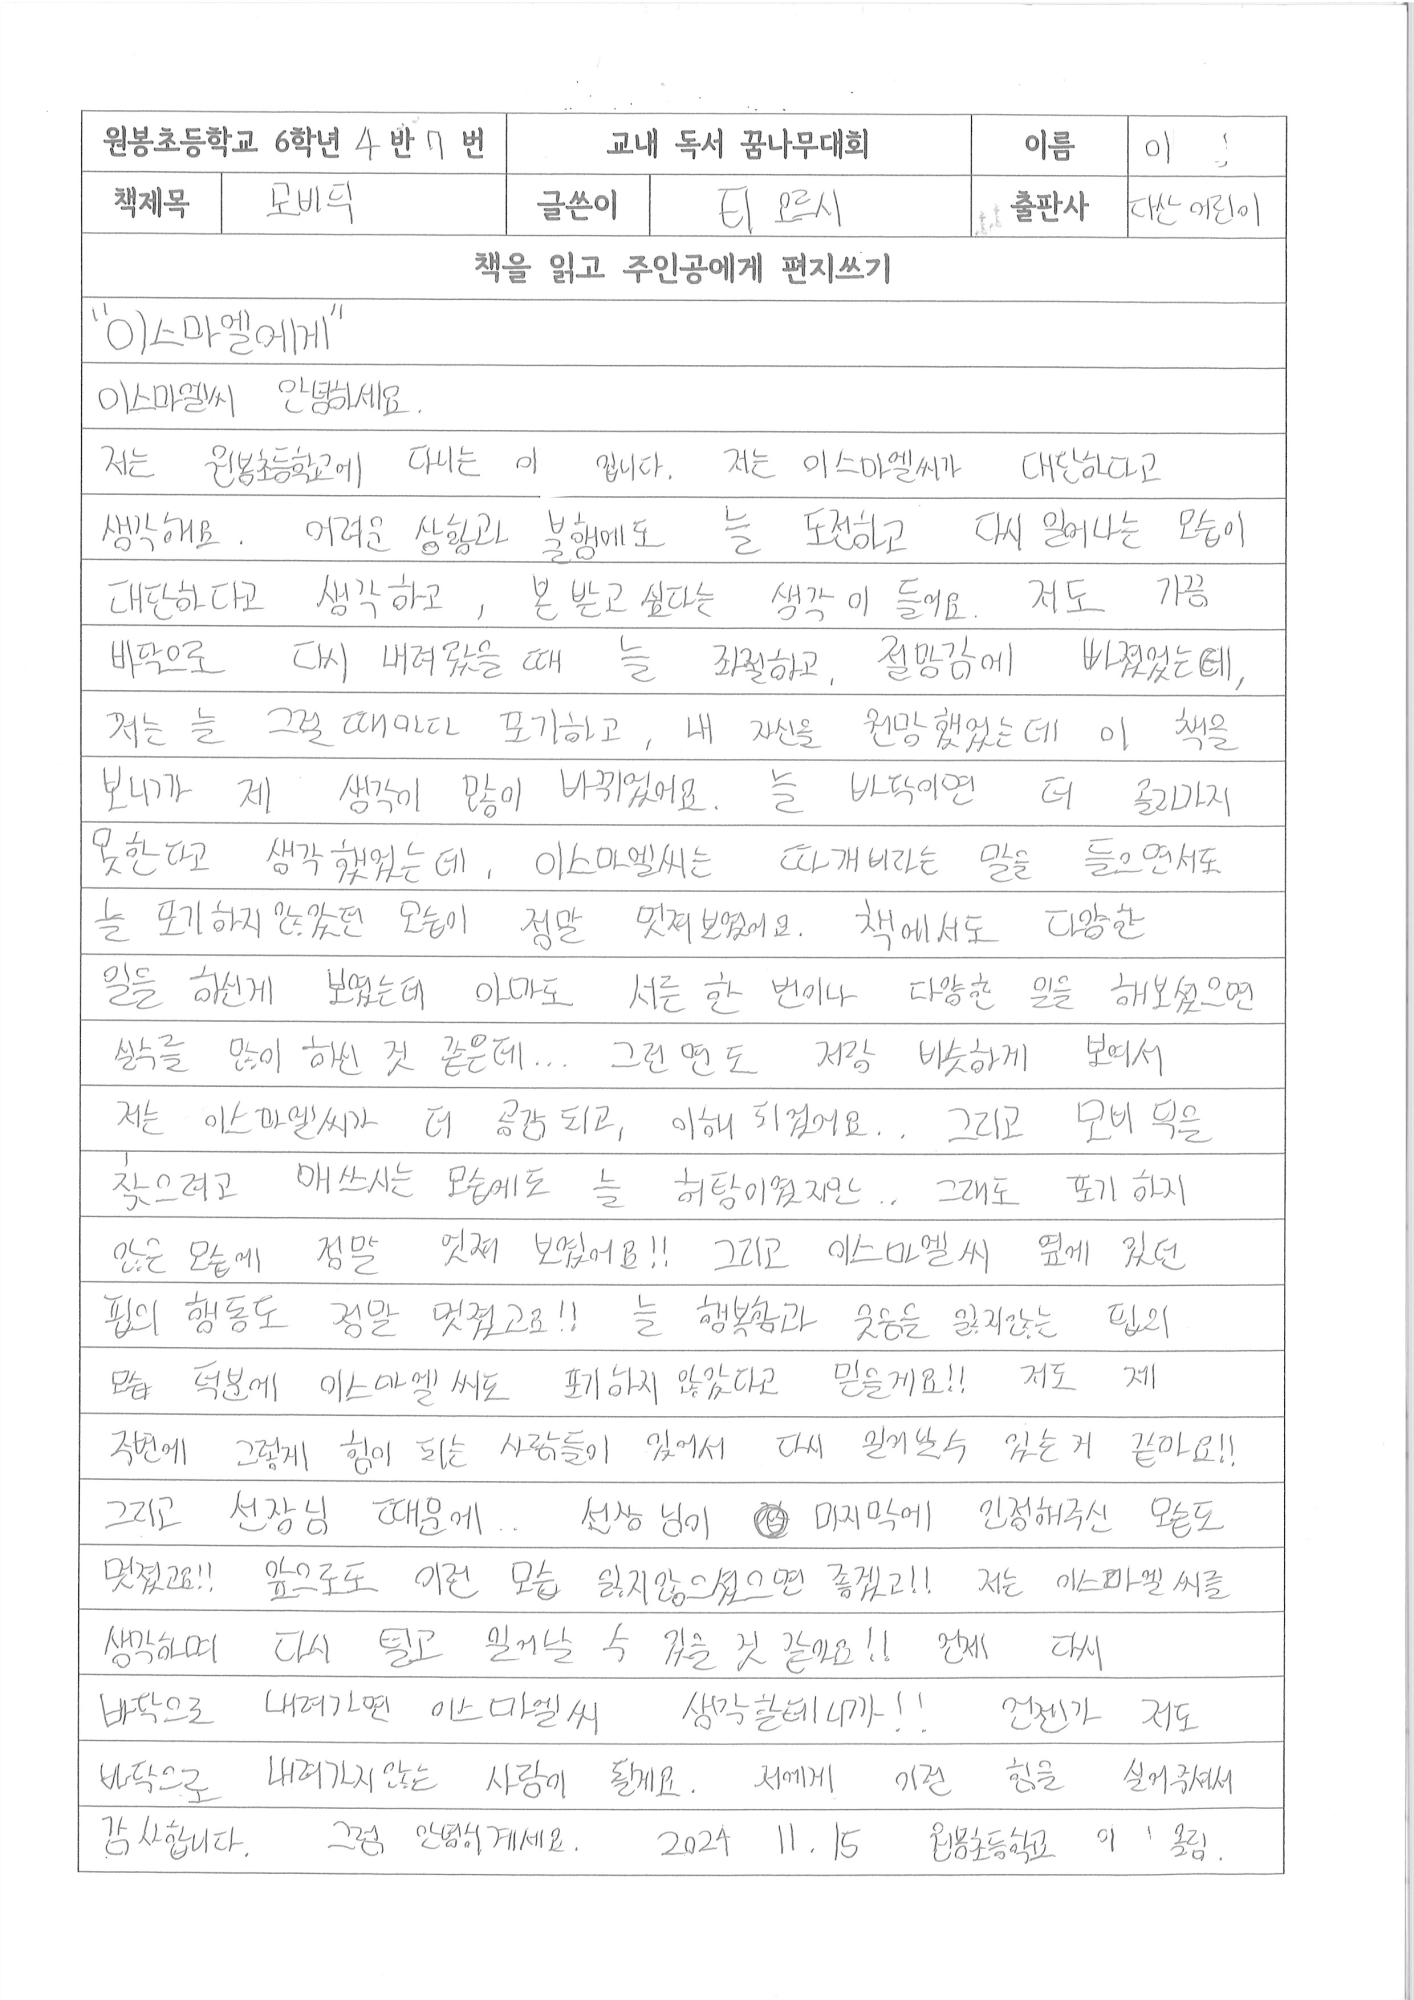 원봉초등학교 6학년 4 반 7 번 교내 독서 꿈나무대회 이름 이
책제목 모비딕 글쓴이 티 오르시 출판사 다산어린이
책을 읽고 주인공에게 편지쓰기
"이스마엘에게"
이스마엘씨 안녕하세요.
저는 원봉초등학교에 다니는 이 입니다. 저는 이스마엘씨가 대단하다고
생각해요. 어려운 상황과 불행에도 늘 도전하고 다시 일어나는 모습이
대단하다고 생각하고, 본 받고 싶다는 생각이 들어요. 저도 가끔
바닥으로 다시 내려 갔을 때 늘 좌절하고, 절망감에 빠졌었는데,
저는 늘 그럴때마다 포기하고, 내 자신을 원망했었는데 이 책을
보니까 제 생각이 많이 바뀌었어요. 늘 바닥이면 더 올라가지
못한다고 생각했었는데, 이스마엘씨는 따개비라는 말을 들으면서도
늘 포기하지 않았던 모습이 정말 멋져보였어요. 책에서도 다양한
일들 하신게 보였는데 아마도 서른 한 번이나 다양한 일을 해보셨으면
실수를 많이 하신 것 같은데... 그런 면도 저랑 비슷하게 보여서
저는 이스마엘씨가 더 공감되고, 이해 되었어요.. 그리고 모비 딕을
찾으려고 애쓰시는 모습에도 늘 허탕이었지만.. 그래도 포기 하지
않은 모습에 정말 멋져 보였어요!! 그리고 이스마엘씨 옆에 있던
핍의 행동도 정말 멋졌고요!! 늘 행복함과 웃음을 잃지않는 핍의
모습 덕분에 이스마엘씨도 포기하지 않았다고 믿을게요!! 저도 제
주변에 그렇게 힘이 되는 사람들이 있어서 다시 일어날수 있는거 같아요!!
그리고 선장님 때문에.. 선장님이 마지막에 인정해주신 모습도
멋졌고요!! 앞으로도 이런 모습 잃지않으셨으면 좋겠고!! 저는 이스마엘씨를
생각하며 다시 털고 일어날 수 있을 것 같아요!! 언제 다시
바닥으로 내려가면 이스마엘씨 생각할테니까!! 언젠가 저도
바닥으로 내려가지않는 사람이 될게요. 저에게 이런 힘을 실어주셔서
감사합니다. 그럼 안녕히계세요. 2024 11.15 원봉초등학교 이 올림.